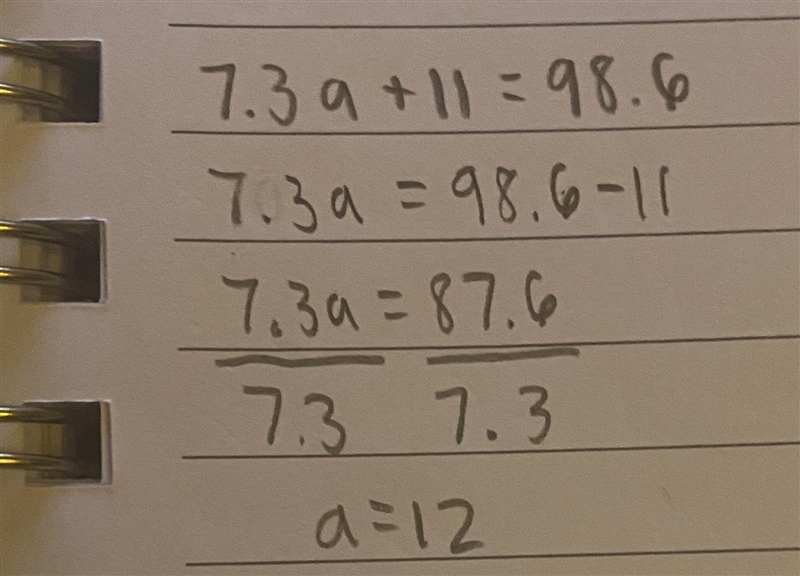 7.3a + 11 = 98.6
7.3a = 98.6 - 11
7.3a = 87.6
7.3 7.3
a = 12